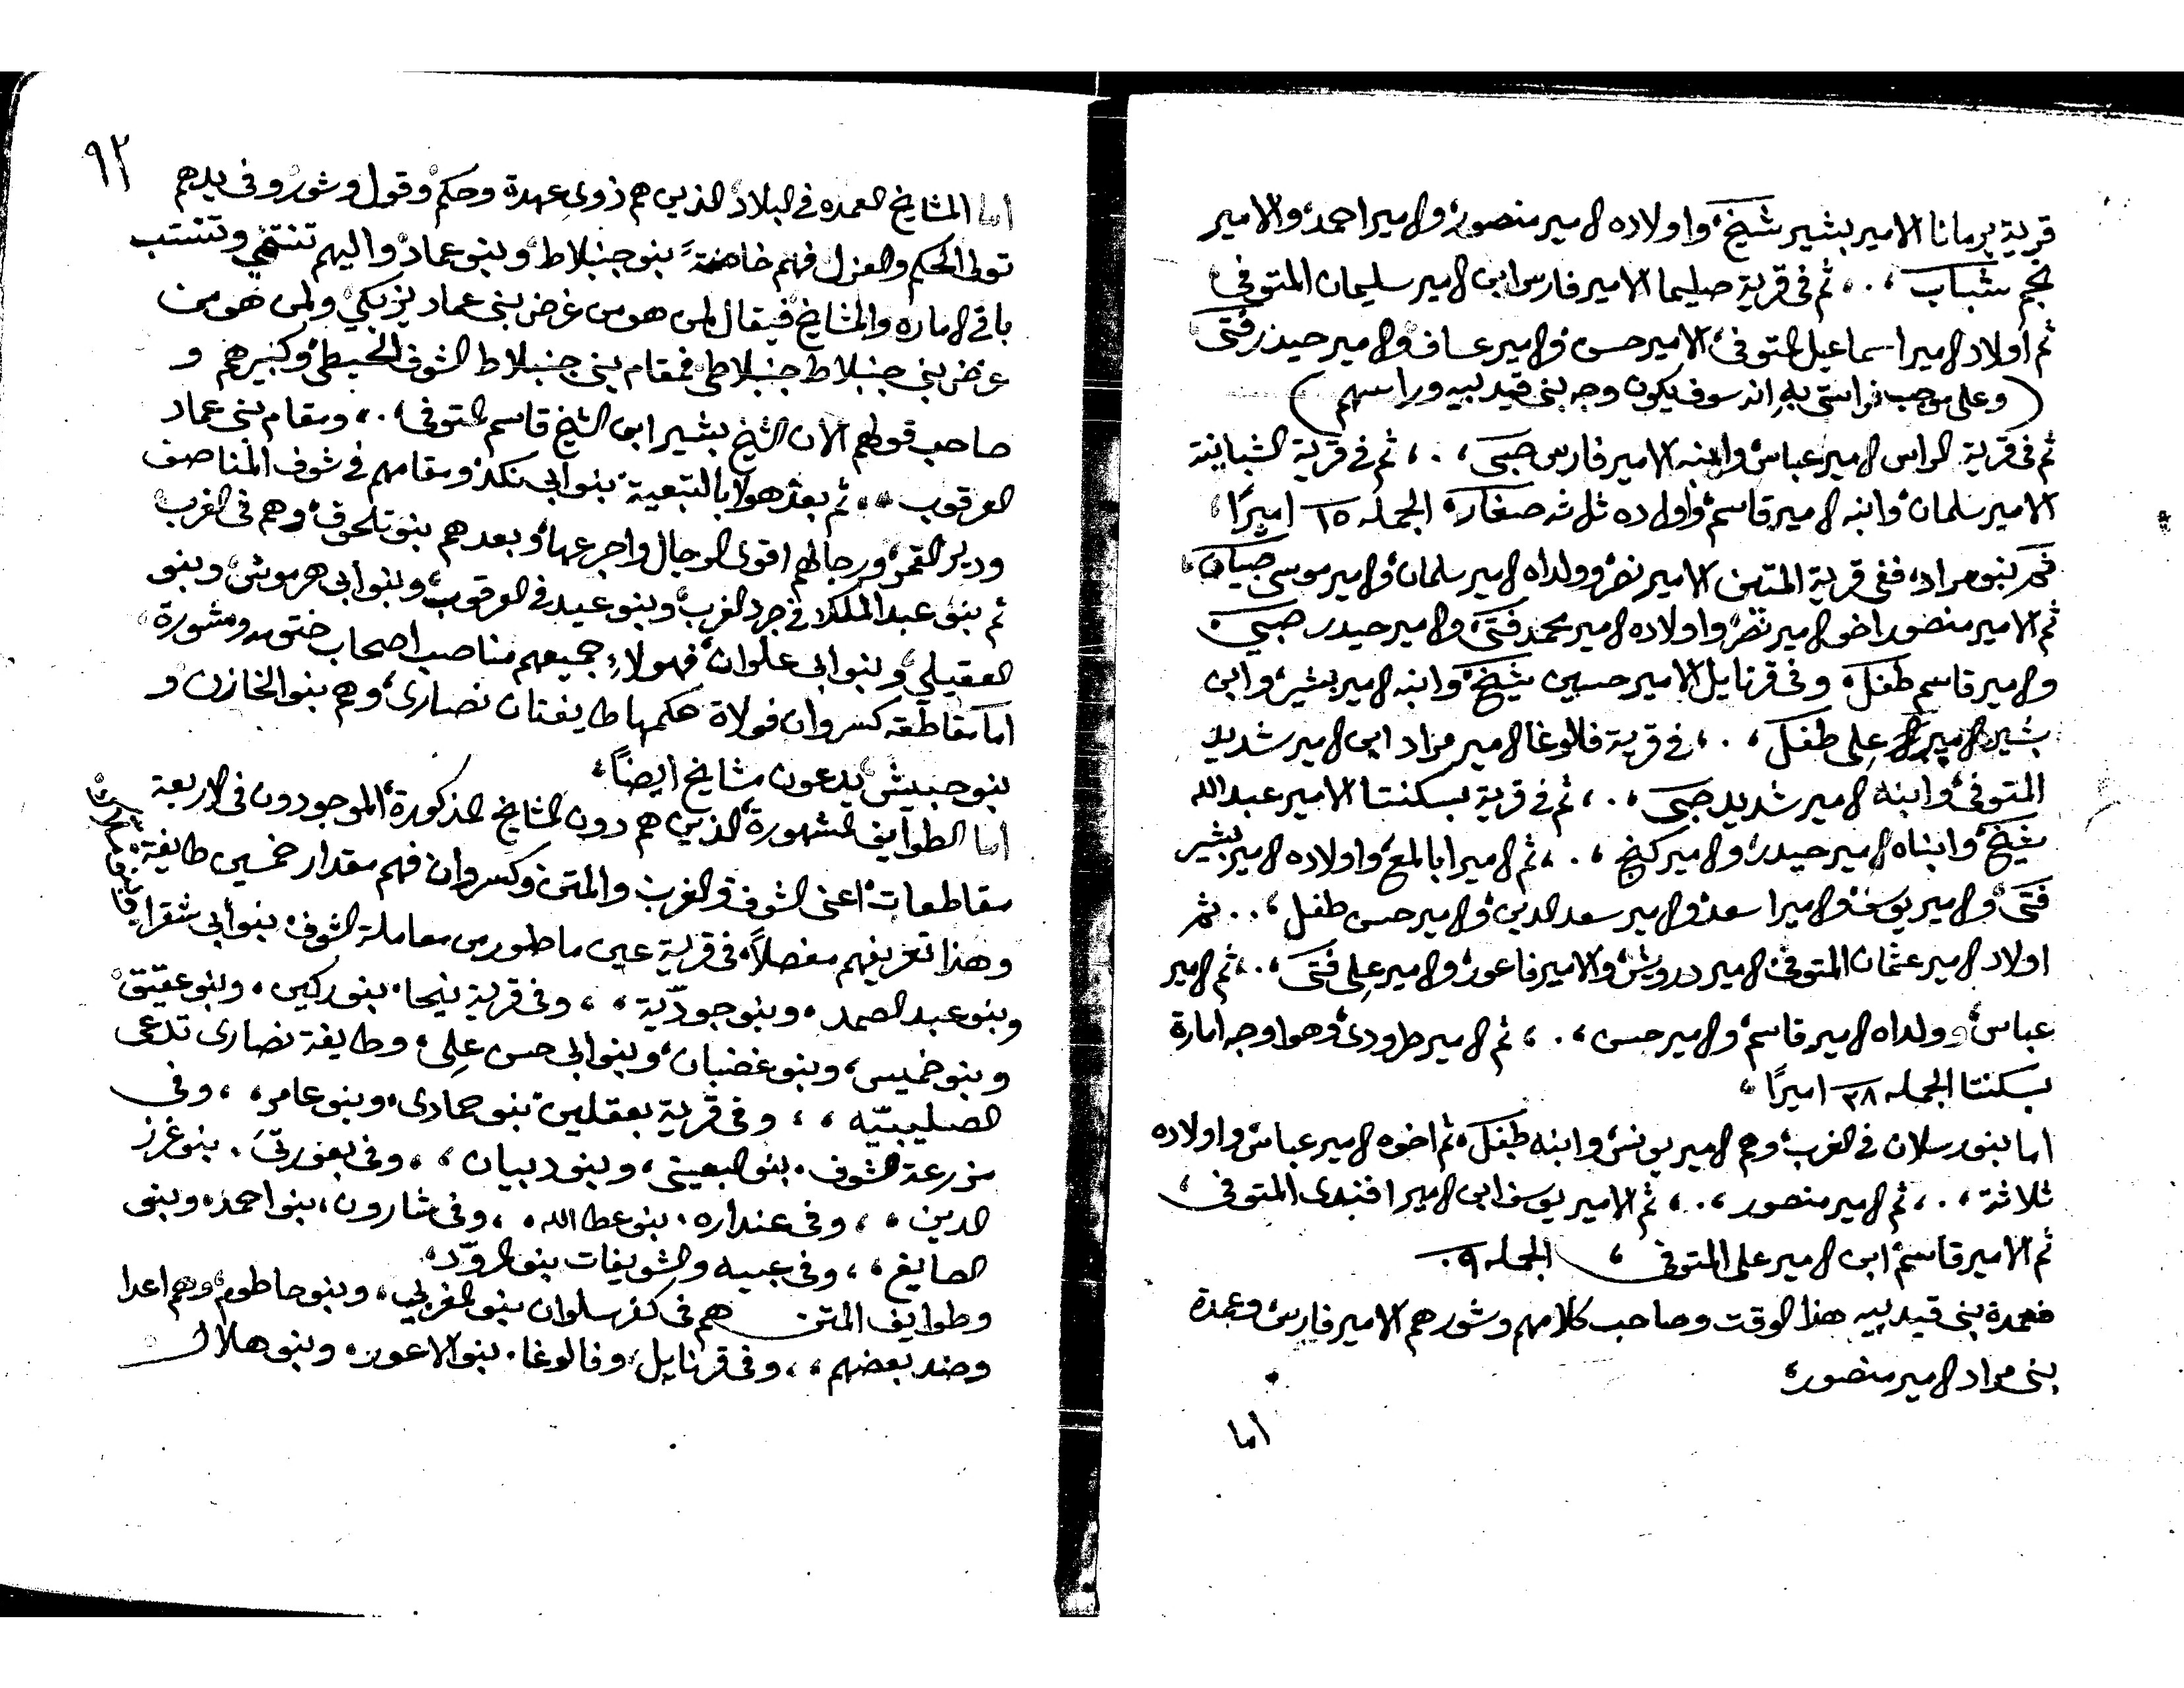 قرية برمانا الامير بشير شيخ، واولاده الامير منصور، والامير احمد، والامير
نجم شباب ، . ، ثم فى قرية صليما الامير فارس ابن الامير سليمان المتوفى،
ثم اولاد الامير اسماعيل المتوفى، الامير حسن والامير عساف والامير حيدر فتى
(وعلى موجب فراستى به انه سوف يكون وجه بنى قيدبيه وراسهم)
ثم فى قرية الراس الامير عباس وابنه الامير فارس صبى ، . ، ثم فى قرية الشبانية
الامير سلمان، وابنه الامير قاسم، واولاده ثلثه صغار، الجمله ١٥ اميرًا،
ثم بنو مراد، ففى قرية المتين الامير نصر، وولداه الامير سلمان، والامير موسى صبيان،
ثم الامير منصور اخو الامير نصر، واولاده الامير محمد فتى، والامير حيدر صبى،
والامير قاسم طفل، وفى قرنايل الامير حسين شيخ، وابنه الامير بشير، وابن
بشير الامير على طفل ، . ، فى قرية فالوغا الامير مراد ابن الامير شديد
المتوفى، وابنه الامير شديد صبى ، . ، ثم فى قرية بسكنتا الامير عبدالله
شيخ، وابناه الامير حيدر، والامير كنج ، . ، ثم الامير ابالمع، واولاده الامير بشير
فتى، والامير يوسف، والامير اسعد، والامير سعد الدين، والامير حسن طفل ، . . ثم
اولاد الامير عثمان المتوفى، الامير درويش، والامير فاعور، والامير على فتى ، . ، ثم الامير
عباس، وولداه الامير قاسم، والامير حسن ، . ، ثم الامير طرودى، وهو اوجه امارة
بسكنتا الجمله ٣٨ اميرًا ،
اما بنو رسلان فى الغرب، وهم الامير يونس، وابنه طفل، ثم اخوه الامير عباس، واولاده
ثلاثة ، . ، ثم الامير منصور ، . ، ثم الامير يوسف ابن الامير افندى المتوفى ،
ثم الامير قاسم، ابن الامير على المتوفى ، الجمله ٩٠
فعمدة بنى قيدبيه هذا الوقت وصاحب كلامهم وشورهم الامير فارس، وعمدة
بنى مراد الامير منصور،
اما
٩٢
اما المشايخ العمده فى البلاد، الذين هم ذوى عهدة وحكم، وقول، وشور، وفى يدهم
تولى الحكم والعزل فهم خاصةً بنو جنبلاط، وبنو عماد، واليهم تنتخى وتنتسب
باقى الاماره والمشايخ، فيقال لمن هو من غرض بنى عماد يزبكى، ولمن هو من
غرض بنى جنبلاط جنبلاطى، فمقام بنى جنبلاط الشوف الحيطى، وكبيرهم و
صاحب قولهم الان الشيخ بشير ابن الشيخ قاسم المتوفى ، . ، ومقام بنى عماد
العرقوب ، . ، ثم بعد هولا بالتبعية، بنو ابى نكد، ومقامهم فى شوف المناصف
ودير القمر، ورجالهم اقوى الرجال واجرعها، وبعدهم بنو تلحوق، وهم فى الغرب
ثم بنو عبد الملك، فى جرد الغرب، وبنو عيد فى العرقوب، وبنو ابى هرموش، وبنو
العقيلى، وبنو ابى علوان، فهولاء، جميعهم مناصب اصحاب ختوم، ومشورة،
اما مقاطعة كسروان فولاة حكمها طايفتان نصارى، وهم بنو الخازن و
بنو حبيش، يدعون مشايخ ايضاً،
اما الطوايف المشهورة، الذين هم دون المشايخ المذكورة، الموجودون فى الاربعة
مقاطعات، اعنى الشوف والغرب والمتن وكسروان فهم مقدار خمسين طايفة،
وهذا تعريفهم مفصلاً، فى قرية عين ماطور من معاملة الشوف، بنو ابى شقرا،
وبنو عبد الصمد ، وبنو جوديّة ، ، وفى قرية نيحا ، بنو ركين ، وبنو عقيق،
وبنو خميس، وبنو غضبان، وبنو ابى حسن على، وطايفة نصارى تدعى
الصليبيّه ، ، وفى قرية بعقلين، بنو حمادى، وبنو عامر ، ، وفى
مزرعة الشوف . بنو البعينى، وبنو دبيان ، ، وفى بعورتى . بنو غرز
الدين ، ، وفى عنداره . بنو عطاالله ، ، وفى شارون، بنو احمد، وبنو
الصايغ ، ، وفى عبيه والشويفات بنو الروّد،
وطوايف المتن هم فى كفرسلوان بنو المغربى، وبنو حاطوم، وهم اعدا
وضد بعضهم ، ، وفى قرنايل، وفالوغا . بنو الاعور، وبنو هلال